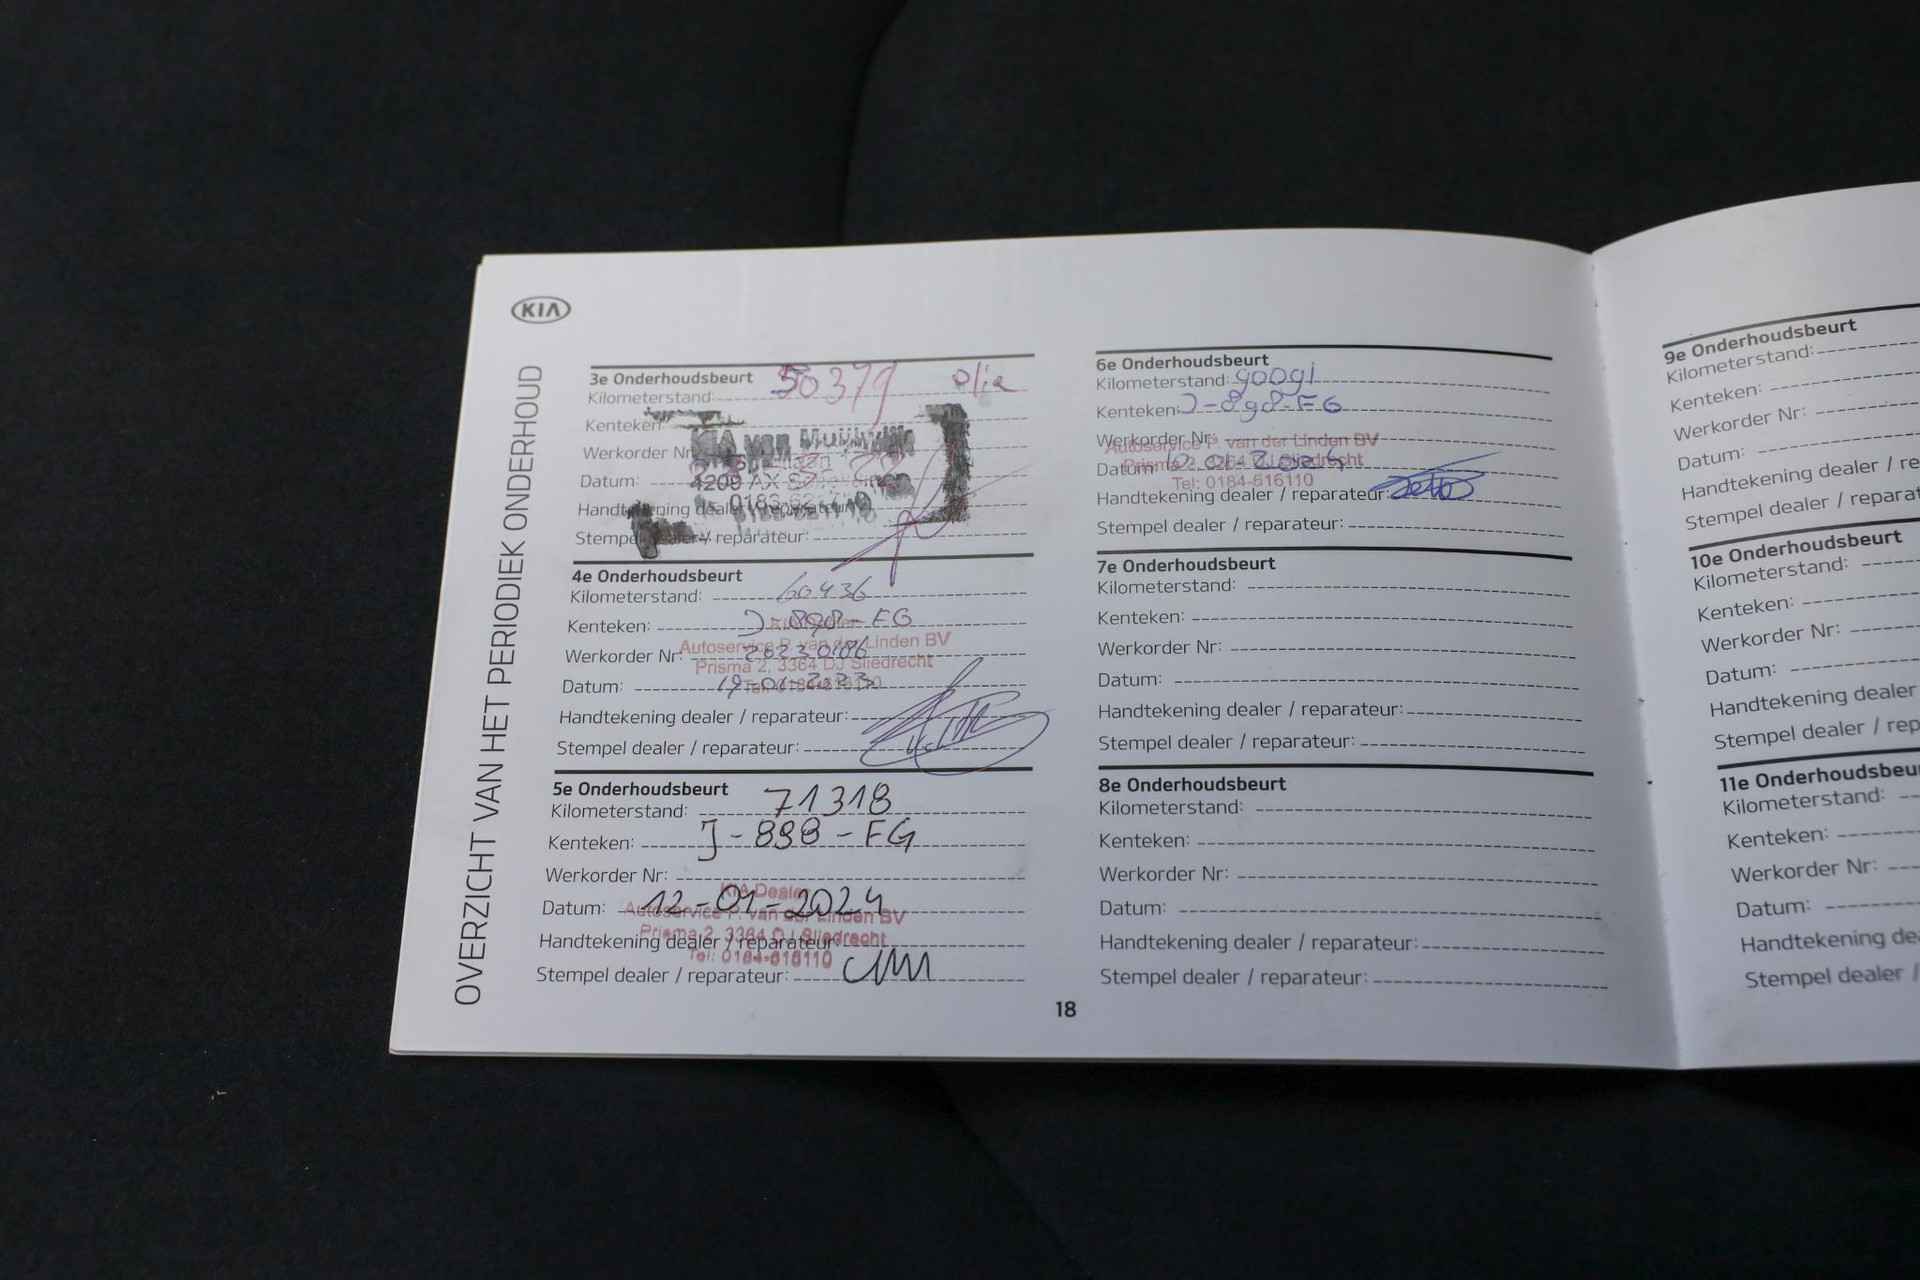 KIA
OVERZICHT VAN HET PERIODIEK ONDERHOUD
3e Onderhoudsbeurt
Kilometerstand: 50379 olie
Kenteken:
KIA van
Werkorder Nr:
Datum:
4200 AX
Handtekening dealer / reparateur:
Stempel dealer / reparateur:
4e Onderhoudsbeurt
Kilometerstand: 60436
Kenteken: J-898-FG
Autoservice P. van der Linden BV
Werkorder Nr: 20230186
Prisma 2, 3364 DJ Sliedrecht
Datum: 19-01-2023
Handtekening dealer / reparateur:
Stempel dealer / reparateur:
5e Onderhoudsbeurt
Kilometerstand: 71318
Kenteken: J-898-FG
Werkorder Nr:
KIA Dealer
Datum: 12-01-2024
Autoservice P. van der Linden BV
Prisma 2, 3364 DJ Sliedrecht
Handtekening dealer / reparateur:
Tel: 0184-616110
Stempel dealer / reparateur:
6e Onderhoudsbeurt
Kilometerstand:
Kenteken: J-898-FG
Werkorder Nr:
Autoservice P. van der Linden BV
Prisma 2, 3364 DJ Sliedrecht
Datum:
Tel: 0184-616110
Handtekening dealer / reparateur:
Stempel dealer / reparateur:
7e Onderhoudsbeurt
Kilometerstand:
Kenteken:
Werkorder Nr:
Datum:
Handtekening dealer / reparateur:
Stempel dealer / reparateur:
8e Onderhoudsbeurt
Kilometerstand:
Kenteken:
Werkorder Nr:
Datum:
Handtekening dealer / reparateur:
Stempel dealer / reparateur:
18
9e Onderhoudsbeurt
Kilometerstand:
Kenteken:
Werkorder Nr:
Datum:
Handtekening dealer / re
Stempel dealer / reparat
10e Onderhoudsbeurt
Kilometerstand:
Kenteken:
Werkorder Nr:
Datum:
Handtekening dealer
Stempel dealer / rep
11e Onderhoudsbeu
Kilometerstand:
Kenteken:
Werkorder Nr:
Datum:
Handtekening de
Stempel dealer /